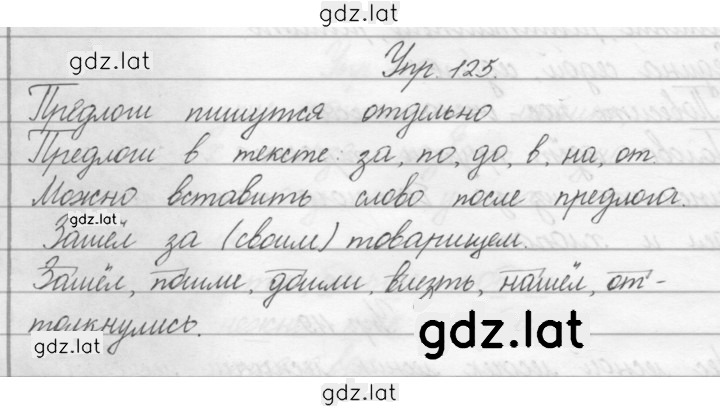 gdz.lat
gdz.lat
Упр. 125.
Предлоги пишутся отдельно
Предлоги в тексте: за, по, до, в, на, от.
Можно вставить слово после предлога.
gdz.lat
Зашёл за (своим) товарищем.
Зашёл, пошли, дошли, влезть, нашёл, от-
толкнулись.
gdz.lat
gdz.lat
gdz.lat